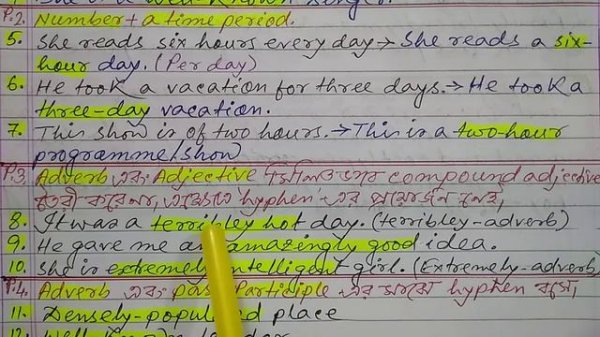 P.2. Number + a time period.
5. She reads six hours every day → She reads a six-
hour day. (Per day)
6. He took a vacation for three days. → He took a
three-day vacation.
7. This show is of two hours. → This is a two-hour
programme/show
P.3. Adverb এবং Adjective compound adjective
'hyphen' এর প্রয়োজন নেই,
8. It was a terribley hot day. (terribley-adverb)
9. He gave me an amazingly good idea.
10. She is extremely intelligent girl. (Extremely-adverb)
P.4. Adverb এবং past Participle এর মাঝে hyphen বসে,
11. Densely-populated place
12.